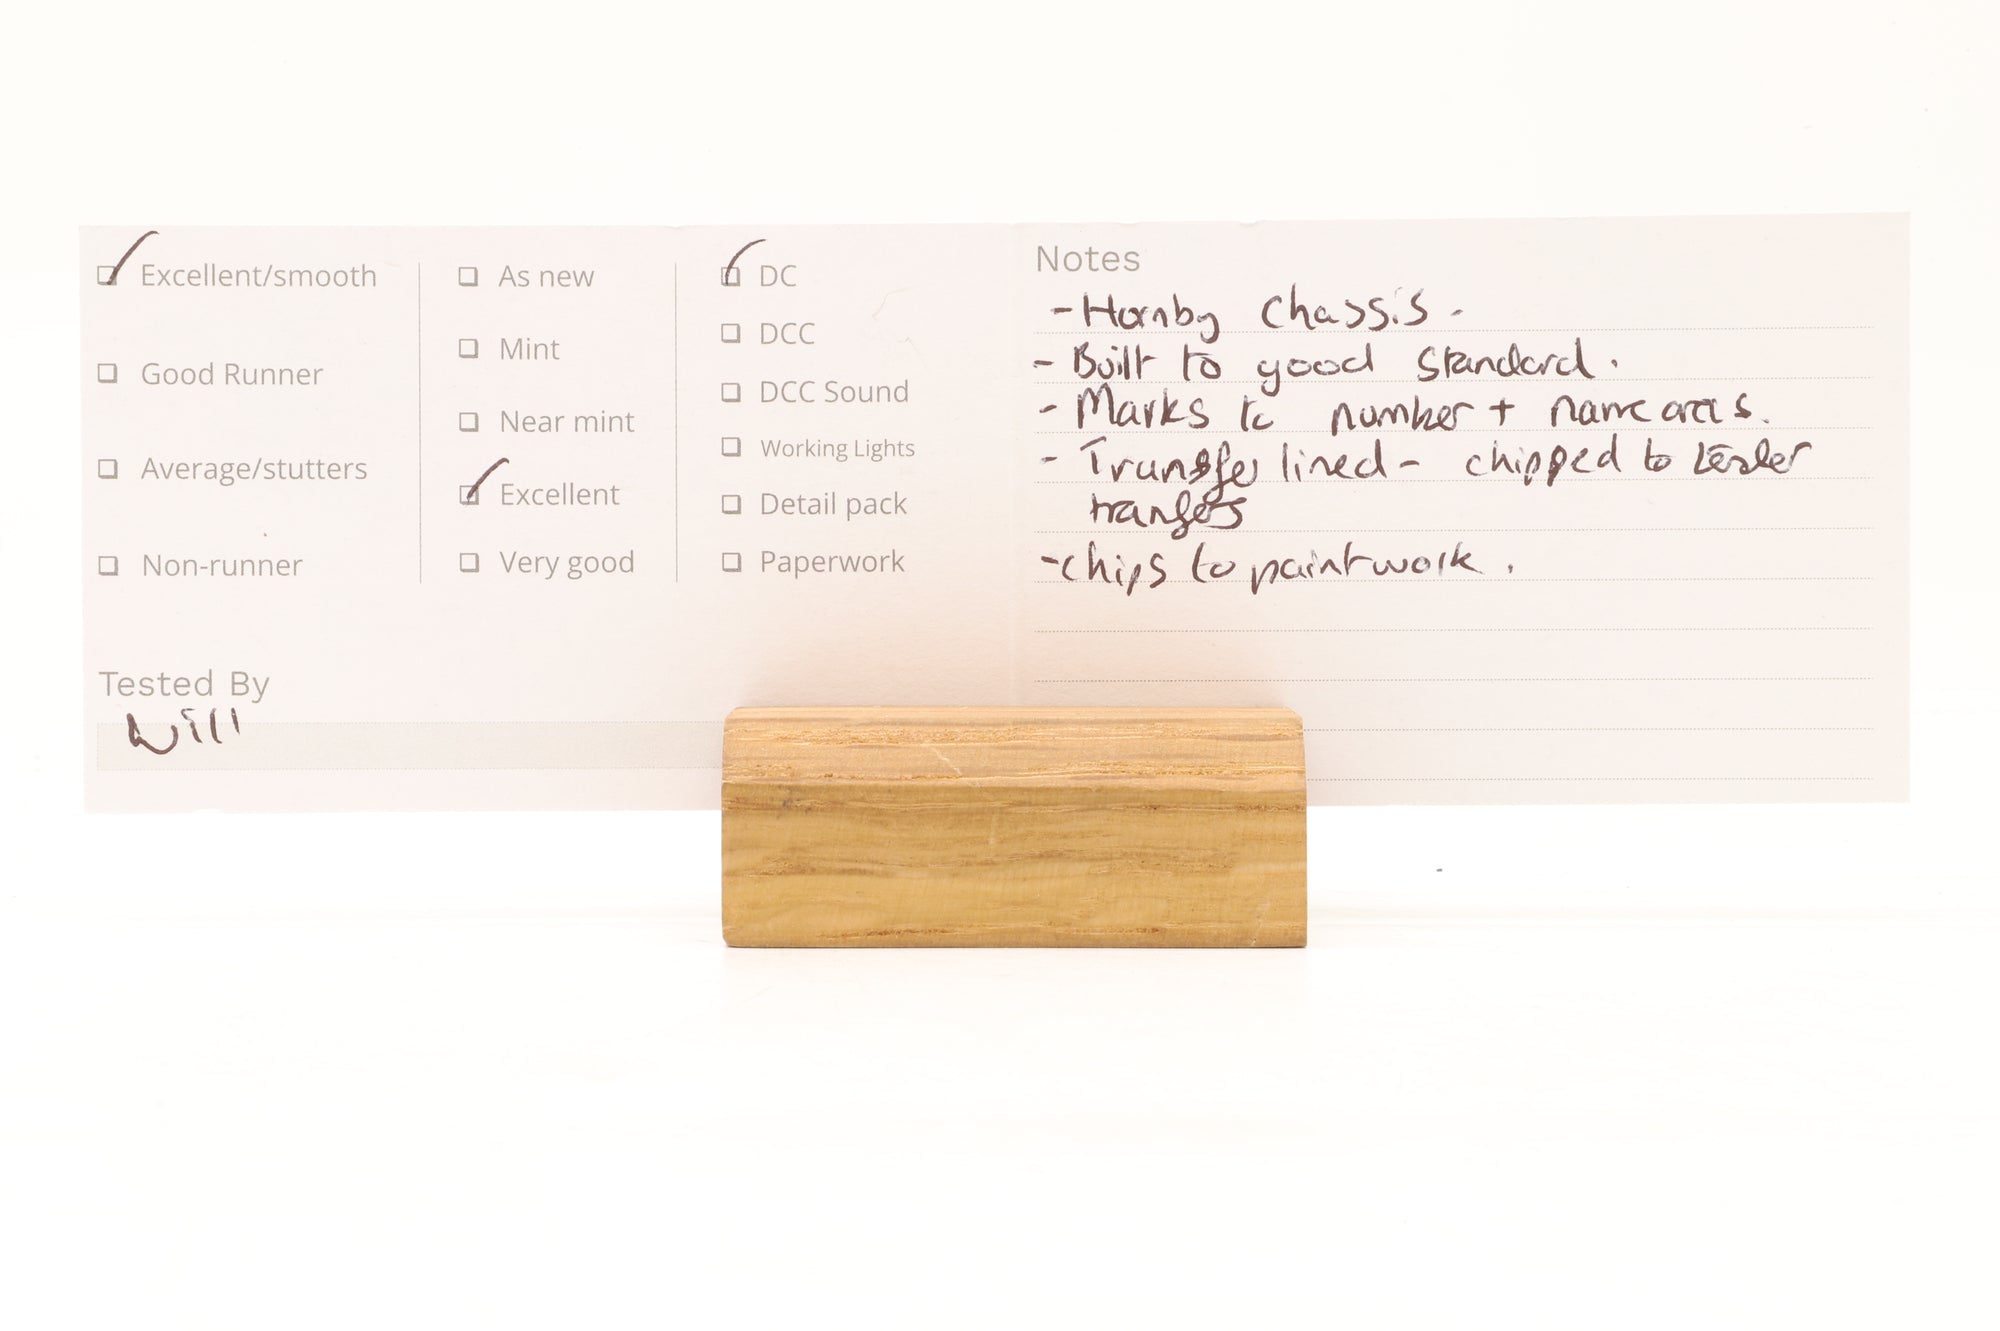 Excellent/smooth
Good Runner
Average/stutters
Non-runner
As new
Mint
Near mint
Excellent
Very good
DC
DCC
DCC Sound
Working Lights
Detail pack
Paperwork
Tested By
Will
Notes
- Hornby Chassis.
- Built to good standard.
- Marks to number + name areas.
- Transfer lined - chipped to
- chips to paintwork.